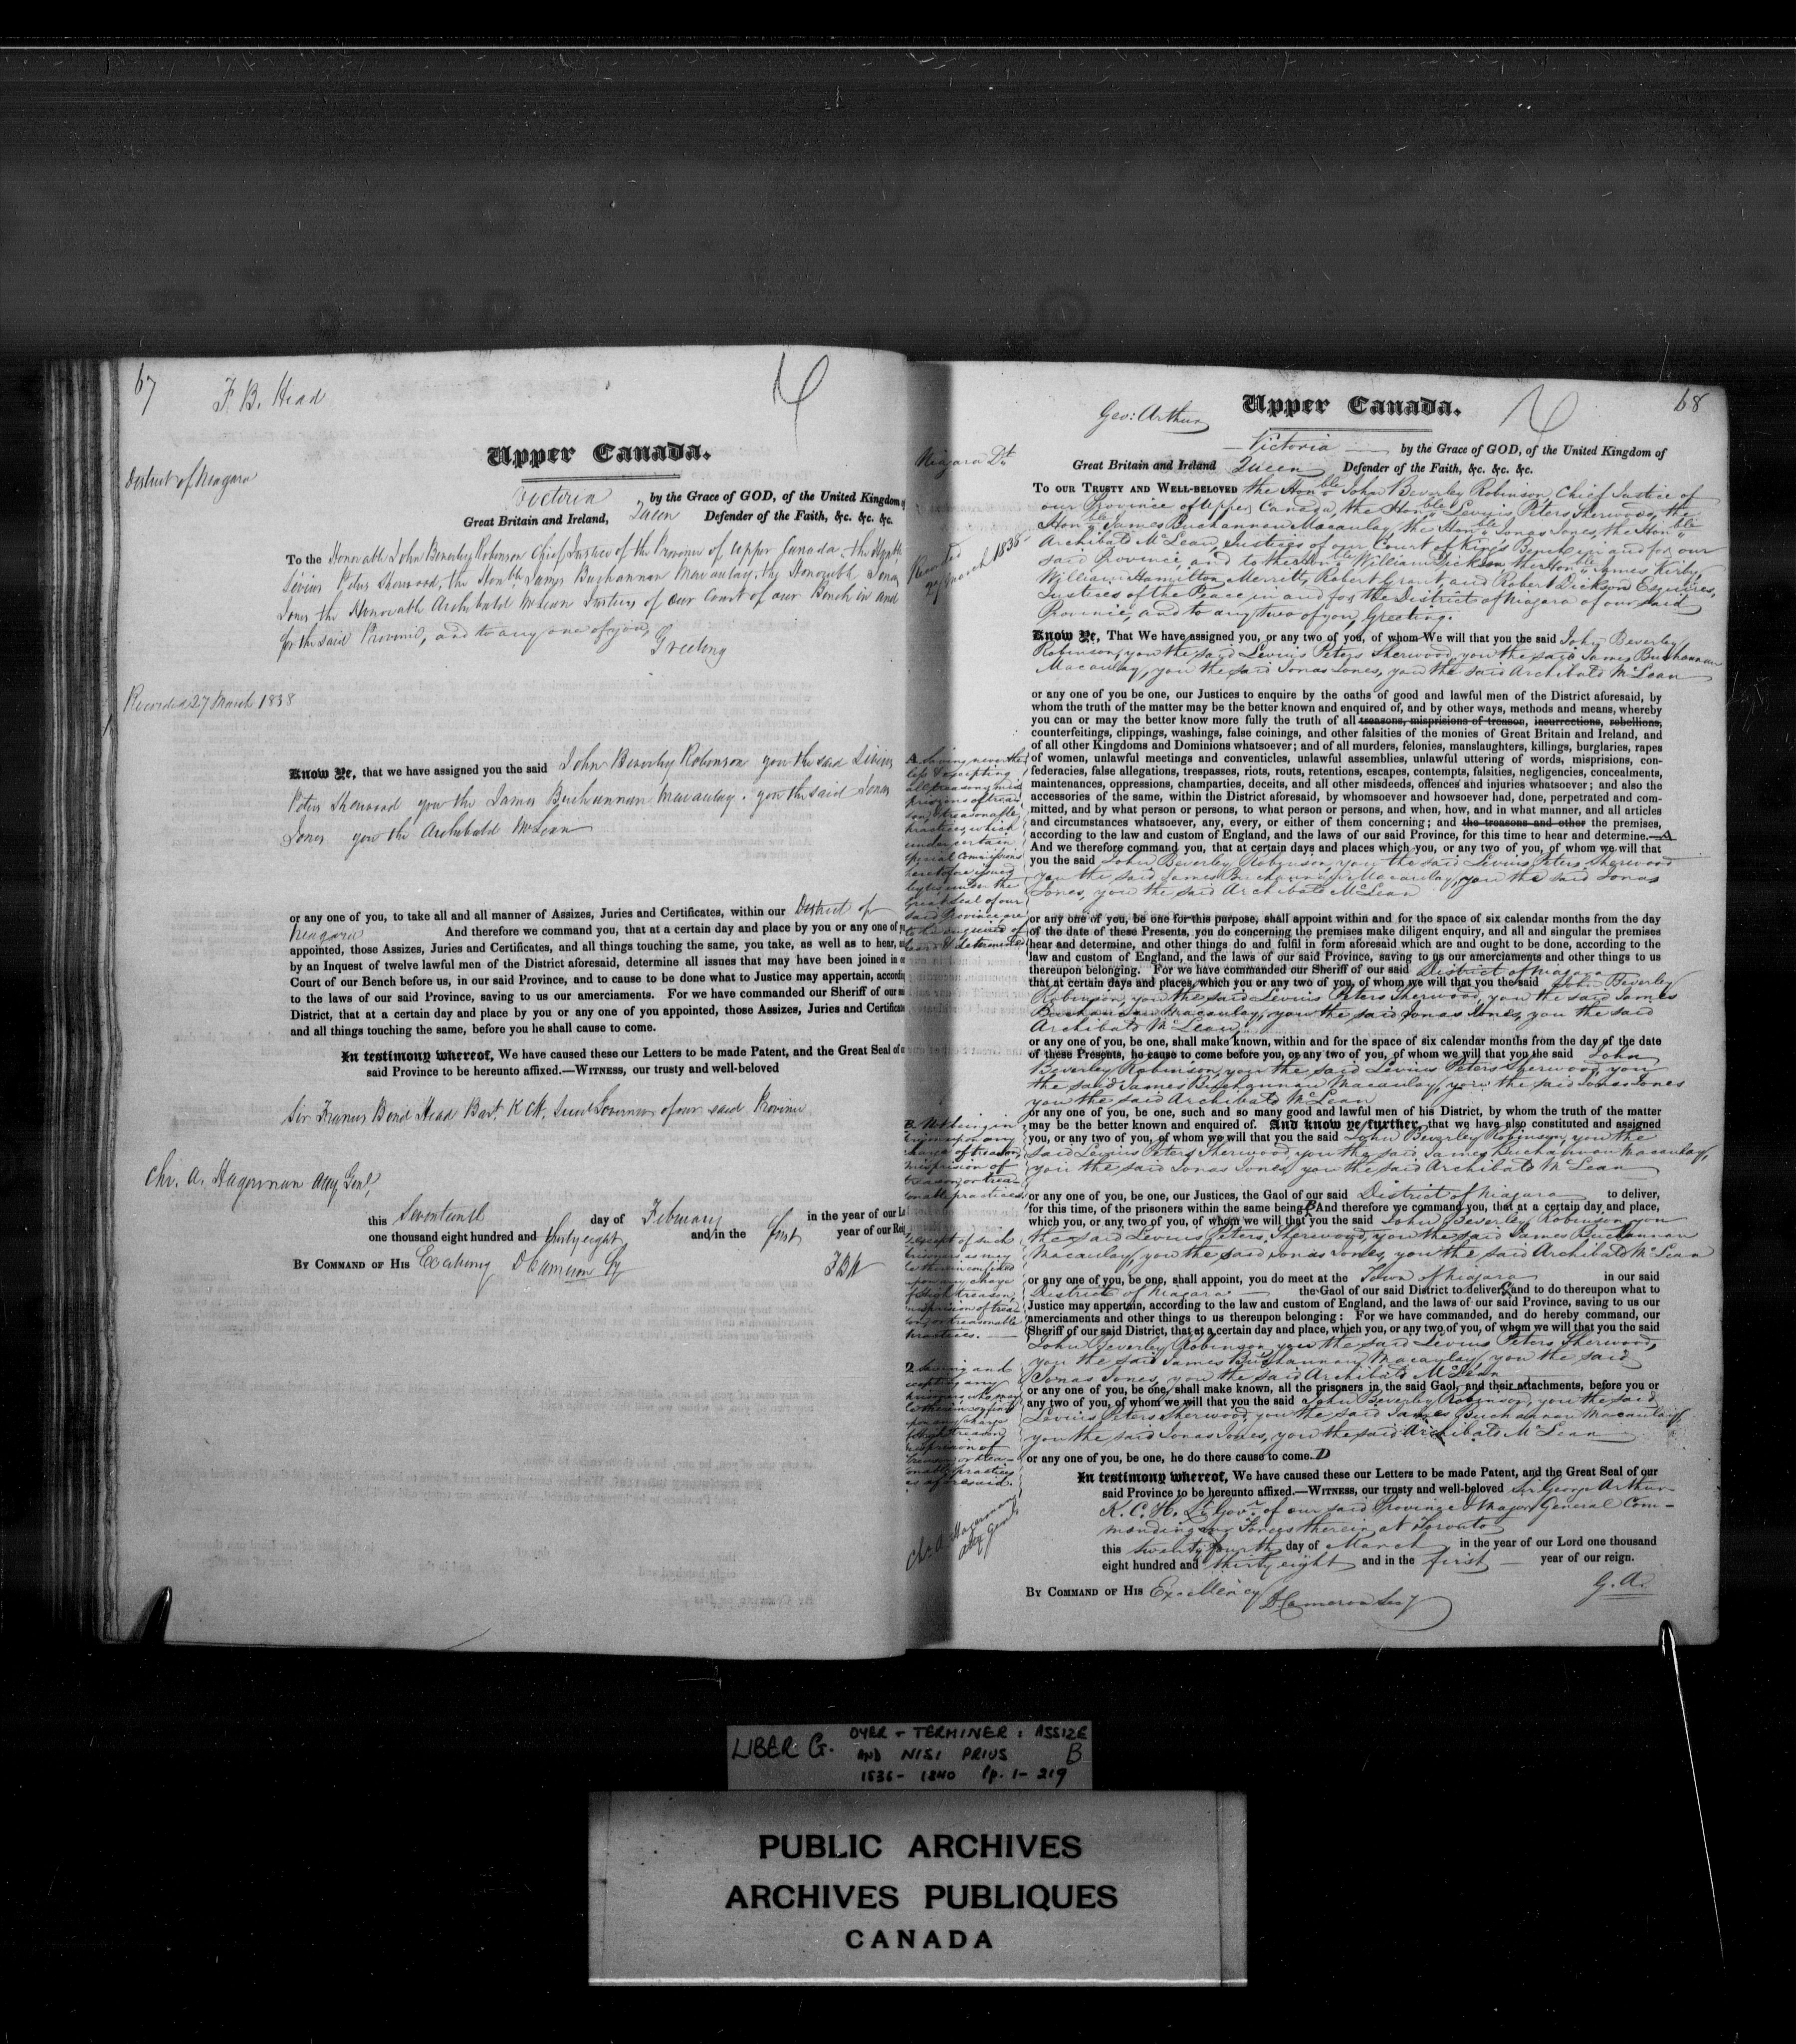 67
F. B. Head
Upper Canada.
District of Niagara
Victoria by the Grace of GOD, of the United Kingdom of
Great Britain and Ireland, Queen Defender of the Faith, &c. &c. &c.
To the Honorable John Beverley Robinson Chief Justice of the Province of Upper Canada, the Honble
Levius Peters Sherwood, the Honble James Buchannan Macaulay, the Honorable Jonas
Jones the Honorable Archibald McLean Justices of our Court of our Bench in and
for the said Province, and to any one of you,
Greeting
Recorded 27 March 1838
Know Ye, that we have assigned you the said John Beverley Robinson you the said Levius
Peters Sherwood you the James Buchannan Macaulay. you the said Jonas
Jones you the Archibald McLean
or any one of you, to take all and all manner of Assizes, Juries and Certificates, within our District of
Niagara And therefore we command you, that at a certain day and place by you or any one of
appointed, those Assizes, Juries and Certificates, and all things touching the same, you take, as well as to hear,
by an Inquest of twelve lawful men of the District aforesaid, determine all issues that may have been joined in
Court of our Bench before us, in our said Province, and to cause to be done what to Justice may appertain,
to the laws of our said Province, saving to us our amerciaments. For we have commanded our Sheriff of our
District, that at a certain day and place by you or any one of you appointed, those Assizes, Juries and Certificates
and all things touching the same, before you he shall cause to come.
In testimony whereof, We have caused these our Letters to be made Patent, and the Great Seal of
said Province to be hereunto affixed.—WITNESS, our trusty and well-beloved
Sir Francis Bond Head Bart. K C H. Lieut Governor of our said Province
Chr. A. Hagerman Atty Genl,
this Seventeenth day of February in the year of our
one thousand eight hundred and thirty eight and in the first year of our
BY COMMAND OF HIS Excellency D Cameron Sy
F B H
68
Geo: Arthur
Upper Canada.
Niagara Dt.
Victoria by the Grace of GOD, of the United Kingdom of
Great Britain and Ireland Queen Defender of the Faith, &c. &c. &c.
TO OUR TRUSTY AND WELL-BELOVED the Honble John Beverley Robinson, Chief Justice of
our Province of Upper Canada, the Honble Levius Peters Sherwood, the
Honble James Buchannan Macaulay, the Honble Jonas Jones, the Honble
Archibald McLean, Justices of our Court of Kings Bench in and for our
said Province, and to the Honble William Dickson the Honble James Kirby
William Hamilton Merritt, Robert Grant, and Robert Dickson Esquires,
Justices of the Peace in and for the District of Niagara of our said
Province, and to any two of you, Greeting.
Recorded
27 March 1838
Know Ye, That We have assigned you, or any two of you, of whom We will that you the said John Beverley
Robinson, you the said Levius Peters Sherwood, you the said James Buchannan
Macaulay, you the said Jonas Jones, you the said Archibald McLean
or any one of you be one, our Justices to enquire by the oaths of good and lawful men of the District aforesaid, by
whom the truth of the matter may be the better known and enquired of, and by other ways, methods and means, whereby
you can or may the better know more fully the truth of all treasons, misprisions of treason, insurrections, rebellions,
counterfeitings, clippings, washings, false coinings, and other falsities of the monies of Great Britain and Ireland, and
of all other Kingdoms and Dominions whatsoever; and of all murders, felonies, manslaughters, killings, burglaries, rapes
of women, unlawful meetings and conventicles, unlawful assemblies, unlawful uttering of words, misprisions, con-
federacies, false allegations, trespasses, riots, routs, retentions, escapes, contempts, falsities, negligencies, concealments,
maintenances, oppressions, champarties, deceits, and all other misdeeds, offences and injuries whatsoever; and also the
accessories of the same, within the District aforesaid, by whomsoever and howsoever had, done, perpetrated and com-
mitted, and by what person or persons, to what person or persons, and when, how, and in what manner, and all articles
and circumstances whatsoever, any, every, or either of them concerning; and the treasons and other the premises,
according to the law and custom of England, and the laws of our said Province, for this time to hear and determine.—A
And we therefore command you, that at certain days and places which you, or any two of you, of whom we will that
you the said John Beverley Robinson, you the said Levius Peters Sherwood
you the said James Buchannan Macaulay, you the said Jonas
Jones, you the said Archibald McLean
A Saving neverthe
less & excepting
all treasons, mis
prisions of trea
son, & treasonable
practices, which
under certain
special Commissions
heretofore issued
by us under the
Great Seal of our
said Province, are
to be enquired of
heard & determined
or any one of you, be one for this purpose, shall appoint within and for the space of six calendar months from the day
of the date of these Presents, you do concerning the premises make diligent enquiry, and all and singular the premises
hear and determine, and other things do and fulfil in form aforesaid which are and ought to be done, according to the
law and custom of England, and the laws of our said Province, saving to us our amerciaments and other things to us
thereupon belonging. For we have commanded our Sheriff of our said District of Niagara
that at certain days and places, which you or any two of you, of whom we will that you the said John Beverley
Robinson, you the said Levius Peters Sherwood, you the said James
Buchannan Macaulay, you the said Jonas Jones, you the said
Archibald McLean
or any one of you, be one, shall make known, within and for the space of six calendar months from the day of the date
of these Presents, he cause to come before you, or any two of you, of whom we will that you the said John
Beverley Robinson, you the said Levius Peters Sherwood, you
the said James Buchannan Macaulay, you the said Jonas Jones
you the said Archibald McLean
or any one of you, be one, such and so many good and lawful men of his District, by whom the truth of the matter
may be the better known and enquired of. And know ye further, that we have also constituted and assigned
you, or any two of you, of whom we will that you the said John Beverley Robinson, you the
said Levius Peters Sherwood, you the said James Buchannan Macaulay,
you the said Jonas Jones, you the said Archibald McLean
B. Not being in
upon any
charge of treason,
misprision of
treason, or trea-
sonable practices
or any one of you, be one, our Justices, the Gaol of our said District of Niagara to deliver,
for this time, of the prisoners within the same being B And therefore we command you, that at a certain day and place,
which you, or any two of you, of whom we will that you the said John Beverley Robinson, you
the said Levius Peters Sherwood, you the said James Buchannan
Macaulay, you the said Jonas Jones, you the said Archibald McLean
except of such
prisoners as may
be therein confined
upon any charge
of High treason,
misprision of trea-
son, or treasonable
practices.
or any one of you, be one, shall appoint, you do meet at the Town of Niagara in our said
District of Niagara the Gaol of our said District to deliver, C and to do thereupon what to
Justice may appertain, according to the law and custom of England, and the laws of our said Province, saving to us our
amerciaments and other things to us thereupon belonging: For we have commanded, and do hereby command, our
Sheriff of our said District, that at a certain day and place, which you, or any two of you, of whom we will that you the said
John Beverley Robinson, you the said Levius Peters Sherwood,
you the said James Buchannan Macaulay, you the said
Jonas Jones, you the said Archibald McLean
or any one of you, be one, shall make known, all the prisoners in the said Gaol, and their attachments, before you or
any two of you, of whom we will that you the said John Beverley Robinson, you the said
Levius Peters Sherwood, you the said James Buchannan Macaulay,
you the said Jonas Jones, you the said Archibald McLean
or any one of you, be one, he do there cause to come. D
D Saving and
excepting any
prisoners who may
be therein confined
upon any charge
of High treason,
misprision of
treason, or trea-
sonable practices
as aforesaid.
Chr. A. Hagerman
Atty Genl
In testimony whereof, We have caused these our Letters to be made Patent, and the Great Seal of our
said Province to be hereunto affixed.—WITNESS, our trusty and well-beloved Sir George Arthur
K. C. H. Lt. Govr. of our said Province & Major General Com-
manding our Forces therein at Toronto
this twenty fourth day of March in the year of our Lord one thousand
eight hundred and thirty eight and in the first year of our reign.
BY COMMAND OF HIS Excellency
D Cameron Secy
G. A.
LIBER G. OYER + TERMINER: ASSIZE
AND NISI PRIUS B
1836 - 1840 Pp. 1 - 219
PUBLIC ARCHIVES
ARCHIVES PUBLIQUES
CANADA